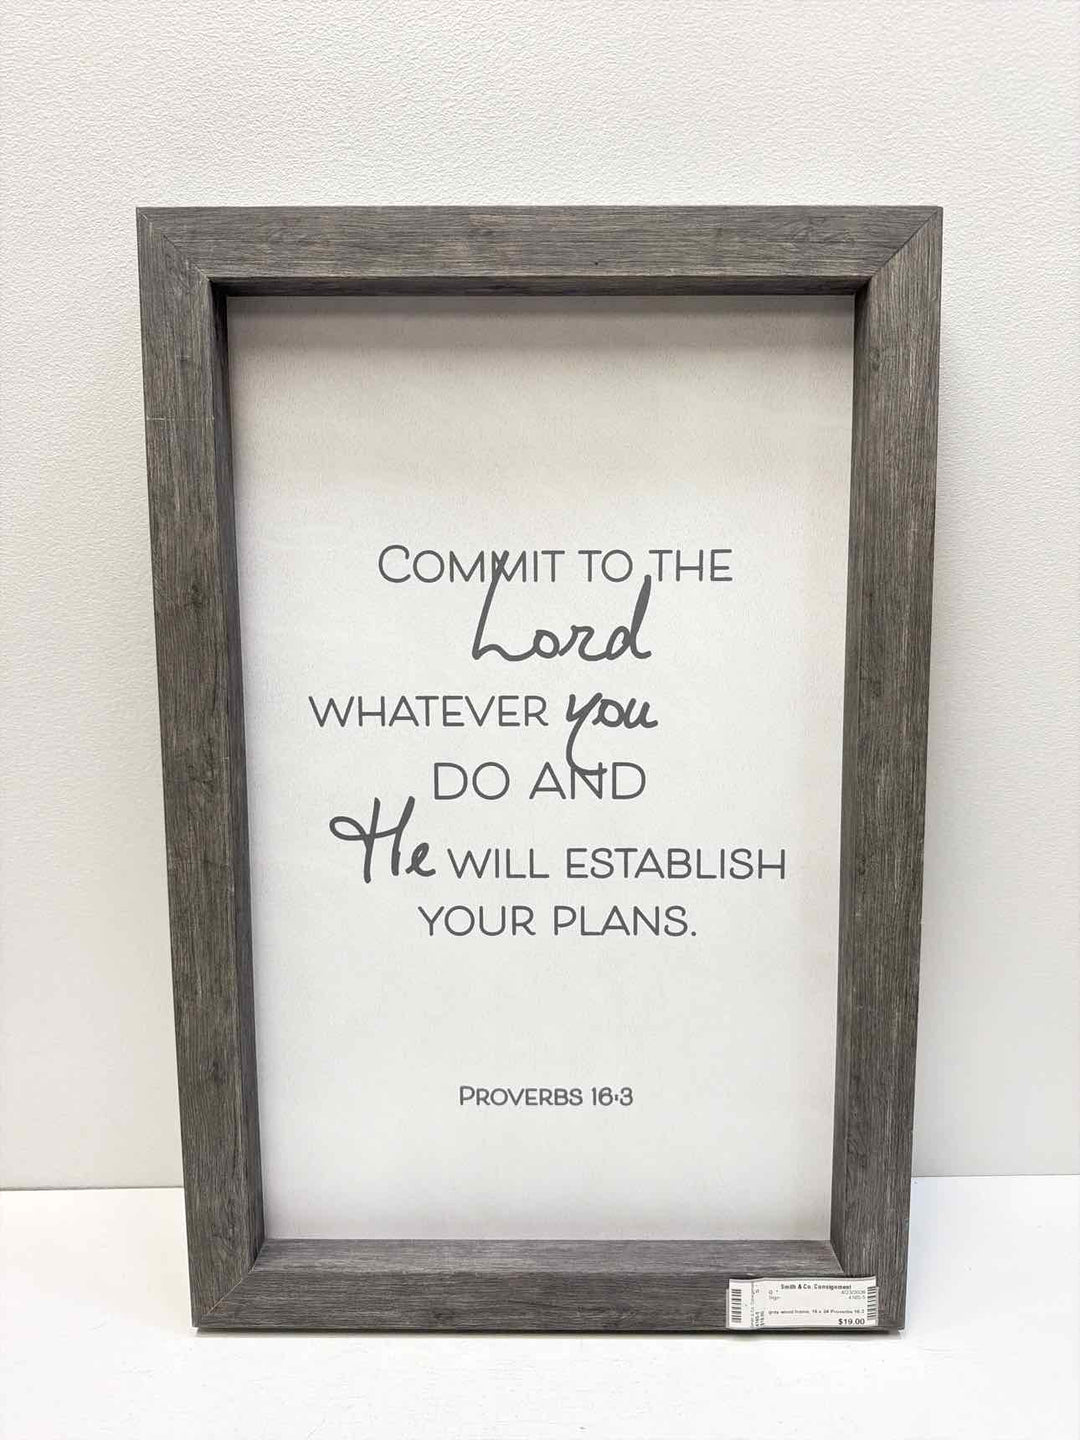 COMMIT TO THE
Lord
WHATEVER you
DO AND
He WILL ESTABLISH
YOUR PLANS.
PROVERBS 16:3
Smith & Co. Consignment
4165-5
gray wood frame, 16 x 24 Proverbs 16:3
$19.00